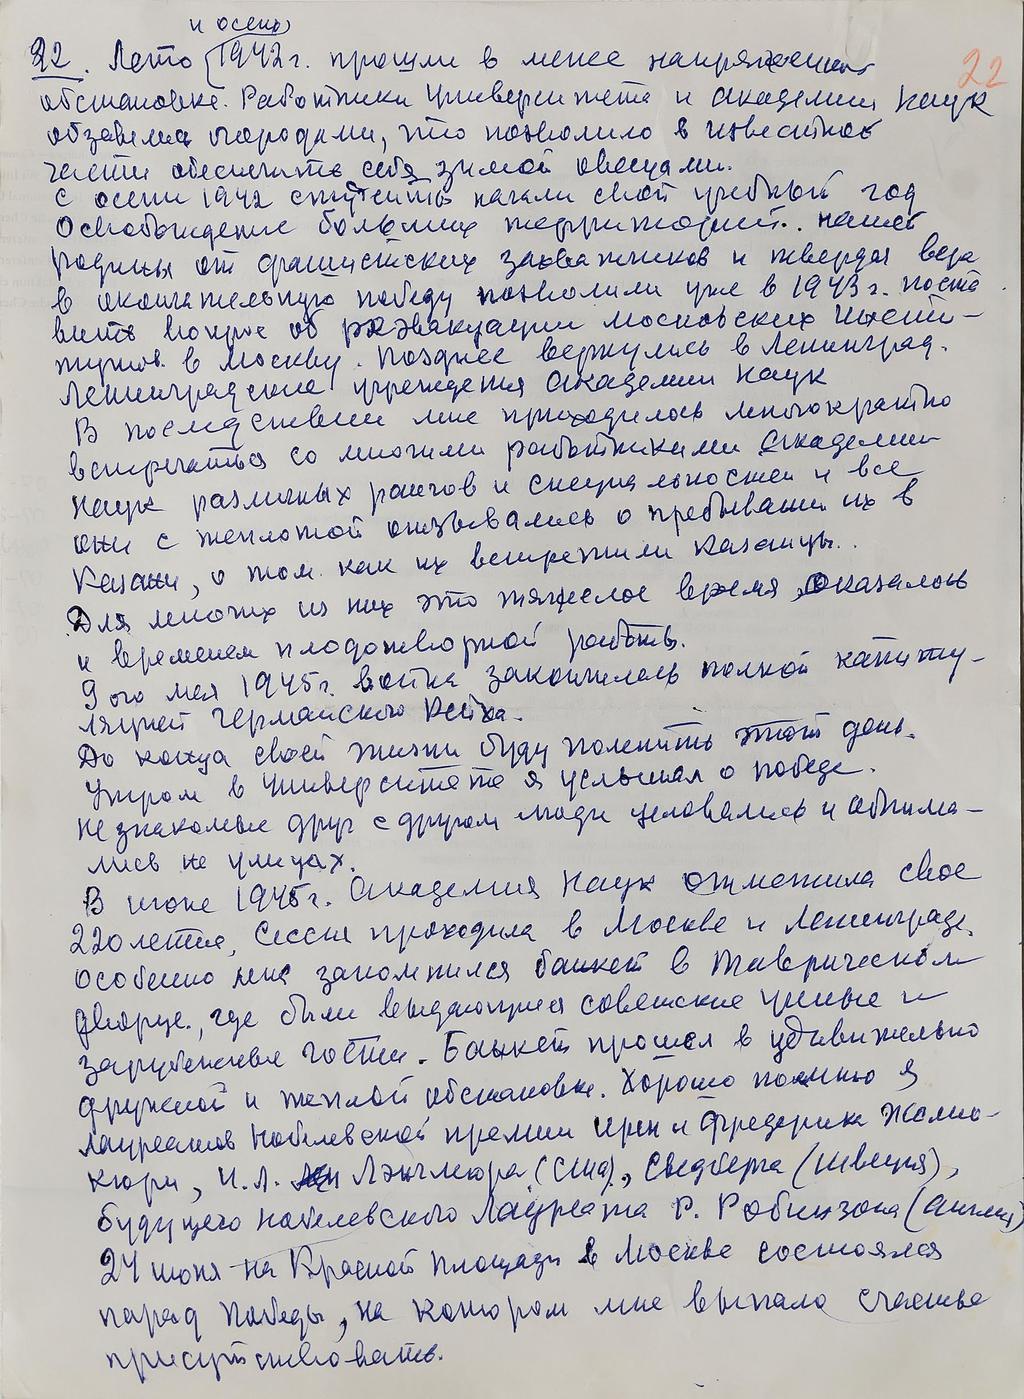 и осень
22. Лето 1942 г. прошли в менее напряженной 22
обстановке. Работники Университета и Академии Наук
обзавелись огородами, что позволило в известной
части обеспечить себя зимой овощами.
С осени 1942 студенты начали свой учебный год
Освобождение больших территорий нашей
родины от фашистских захватчиков и твердая вера
в окончательную победу позволили уже в 1943 г. поста
вить вопрос об реэвакуации Московских Инсти-
тутов в Москву. Позднее вернулись в Ленинград.
Ленинградские учреждения Академии Наук
В последствии мне приходилось многократно
встречаться со многими работниками Академии
Наук различных рангов и специальностей и все
они с теплотой отзывались о пребывании их в
Казани, о том как их встретили казанцы.
Для многих из них это тяжелое время, оказалось
и временем плодотворной работы.
9ого мая 1945 г. война закончилась полной капиту-
ляцией Германского Рейха.
До конца своей жизни буду помнить этот день.
Утром в Университете я услышал о победе.
Незнакомые друг с другом люди целовались и обнима-
лись на улицах.
В июне 1945 г. Академия Наук отметила свое
220 летие, Сессия проходила в Москве и Ленинграде.
Особенно мне запомнился банкет в Таврическом
дворце, где были выдающиеся советские ученые и
зарубежные гости. Банкет прошел в удивительно
дружной и теплой обстановке. Хорошо помню я
лауреатов Нобелевской премии Ирен и Фредерика Жолио-
Кюри, И.Л. Лэнгмюра (США), Сведберга (Швеция),
будущего нобелевского лауреата Р. Робинзона (Англия)
24 июня на Красной площади в Москве состоялся
парад Победы, на котором мне выпало счастье
присутствовать.